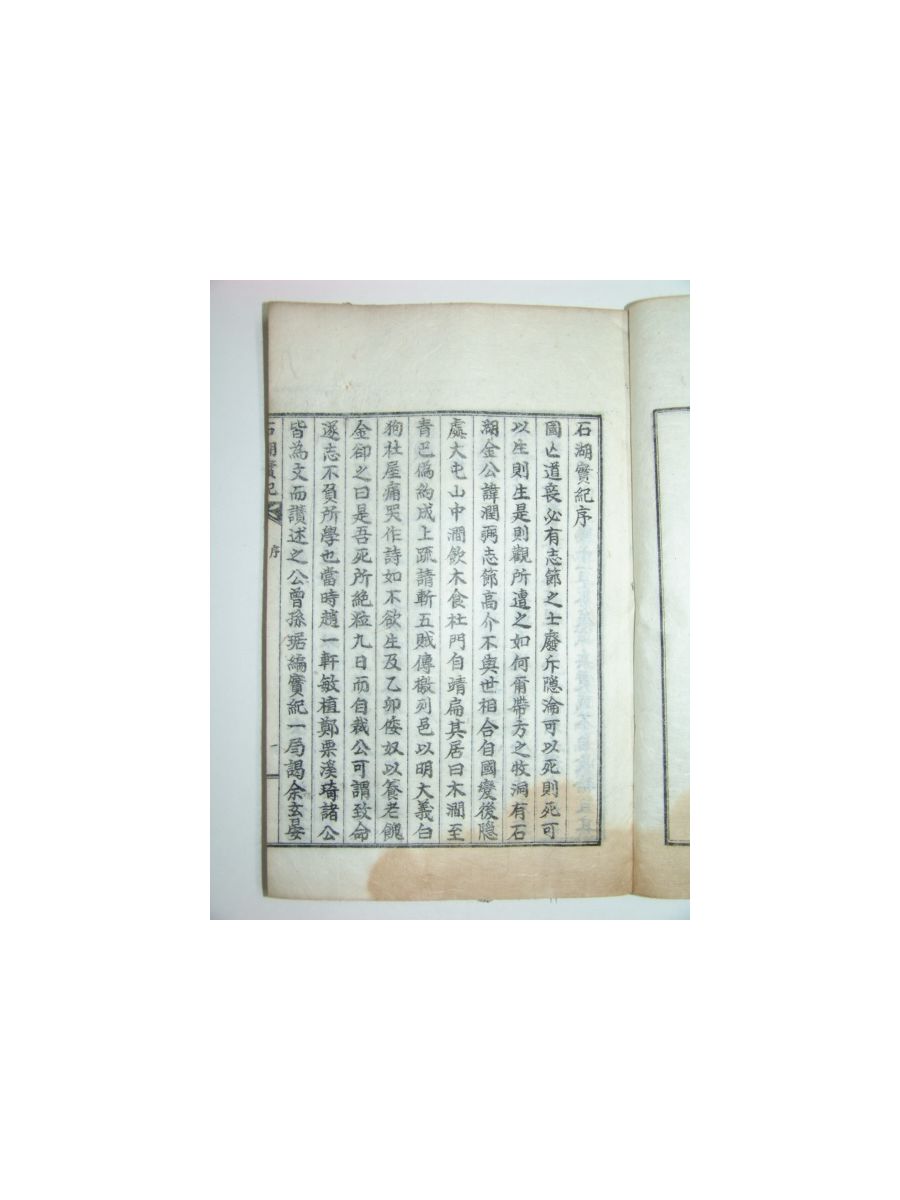 石湖實紀序
國亡道喪必有志節之士廢斥隱淪可以死則死可
以生則生是則觀所遭之如何爾帶方之牧洞有石
湖金公諱潤弼志節高介不與世相合自國變後隱
處大屯山中澗飮木食杜門自靖扁其居曰木澗至
青巴僞約成上疏請斬五賊傳檄列邑以明大義白
狗社屋痛哭作詩如不欲生及乙卯倭奴以養老餽
金卻之曰是吾死所絶粒九日而自裁公可謂致命
遂志不負所學也當時趙一軒敏植鄭栗溪琦諸公
皆為文而讚述之公曾孫琚編實紀一局謁余玄晏
石湖實紀
序
一